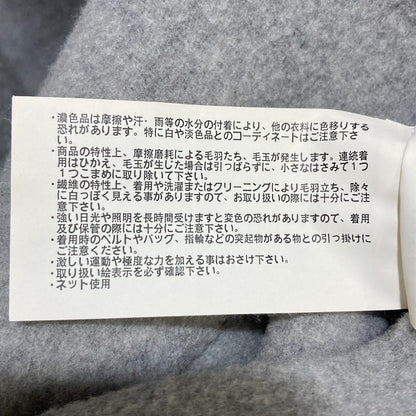 ・濃色品は摩擦や汗・雨等の水分の付着により、他の衣料に色移りする
恐れがあります。特に白や淡色品とのコーディネートはご注意下さ
い。
・商品の特性上、摩擦磨耗による毛羽たち、毛玉が発生します。連続着
用はひかえ、毛玉が生じた場合は引っぱらずに、小さなはさみで1つ
1つこまめに取り除いて下さい。
・繊維の特性上、着用や洗濯またはクリーニングにより毛羽立ち、除々
に白っぽく見える事がありますので、お取扱いの際には十分にご注
意下さい。
・強い日光や照明を長時間受けますと変色の恐れがありますので、着用
及び保管の際には十分にご注意下さい。
・着用時のベルトやバッグ、指輪などの突起物がある物との引っ掛けに
ご注意ください。
・激しい運動や極度な力を加える事はおさけ下さい。
・取り扱い絵表示を必ず確認下さい。
・ネット使用